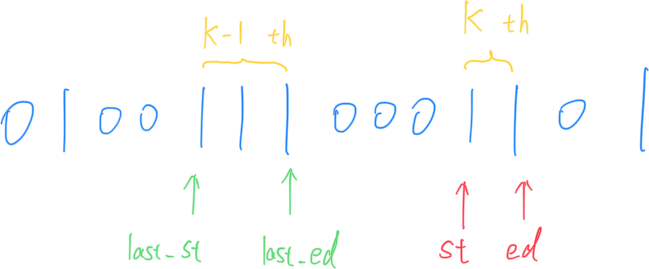 K-1 th K th
0 1 0 0 1 1 1 0 0 0 1 1 0 1
last_st last_ed st ed